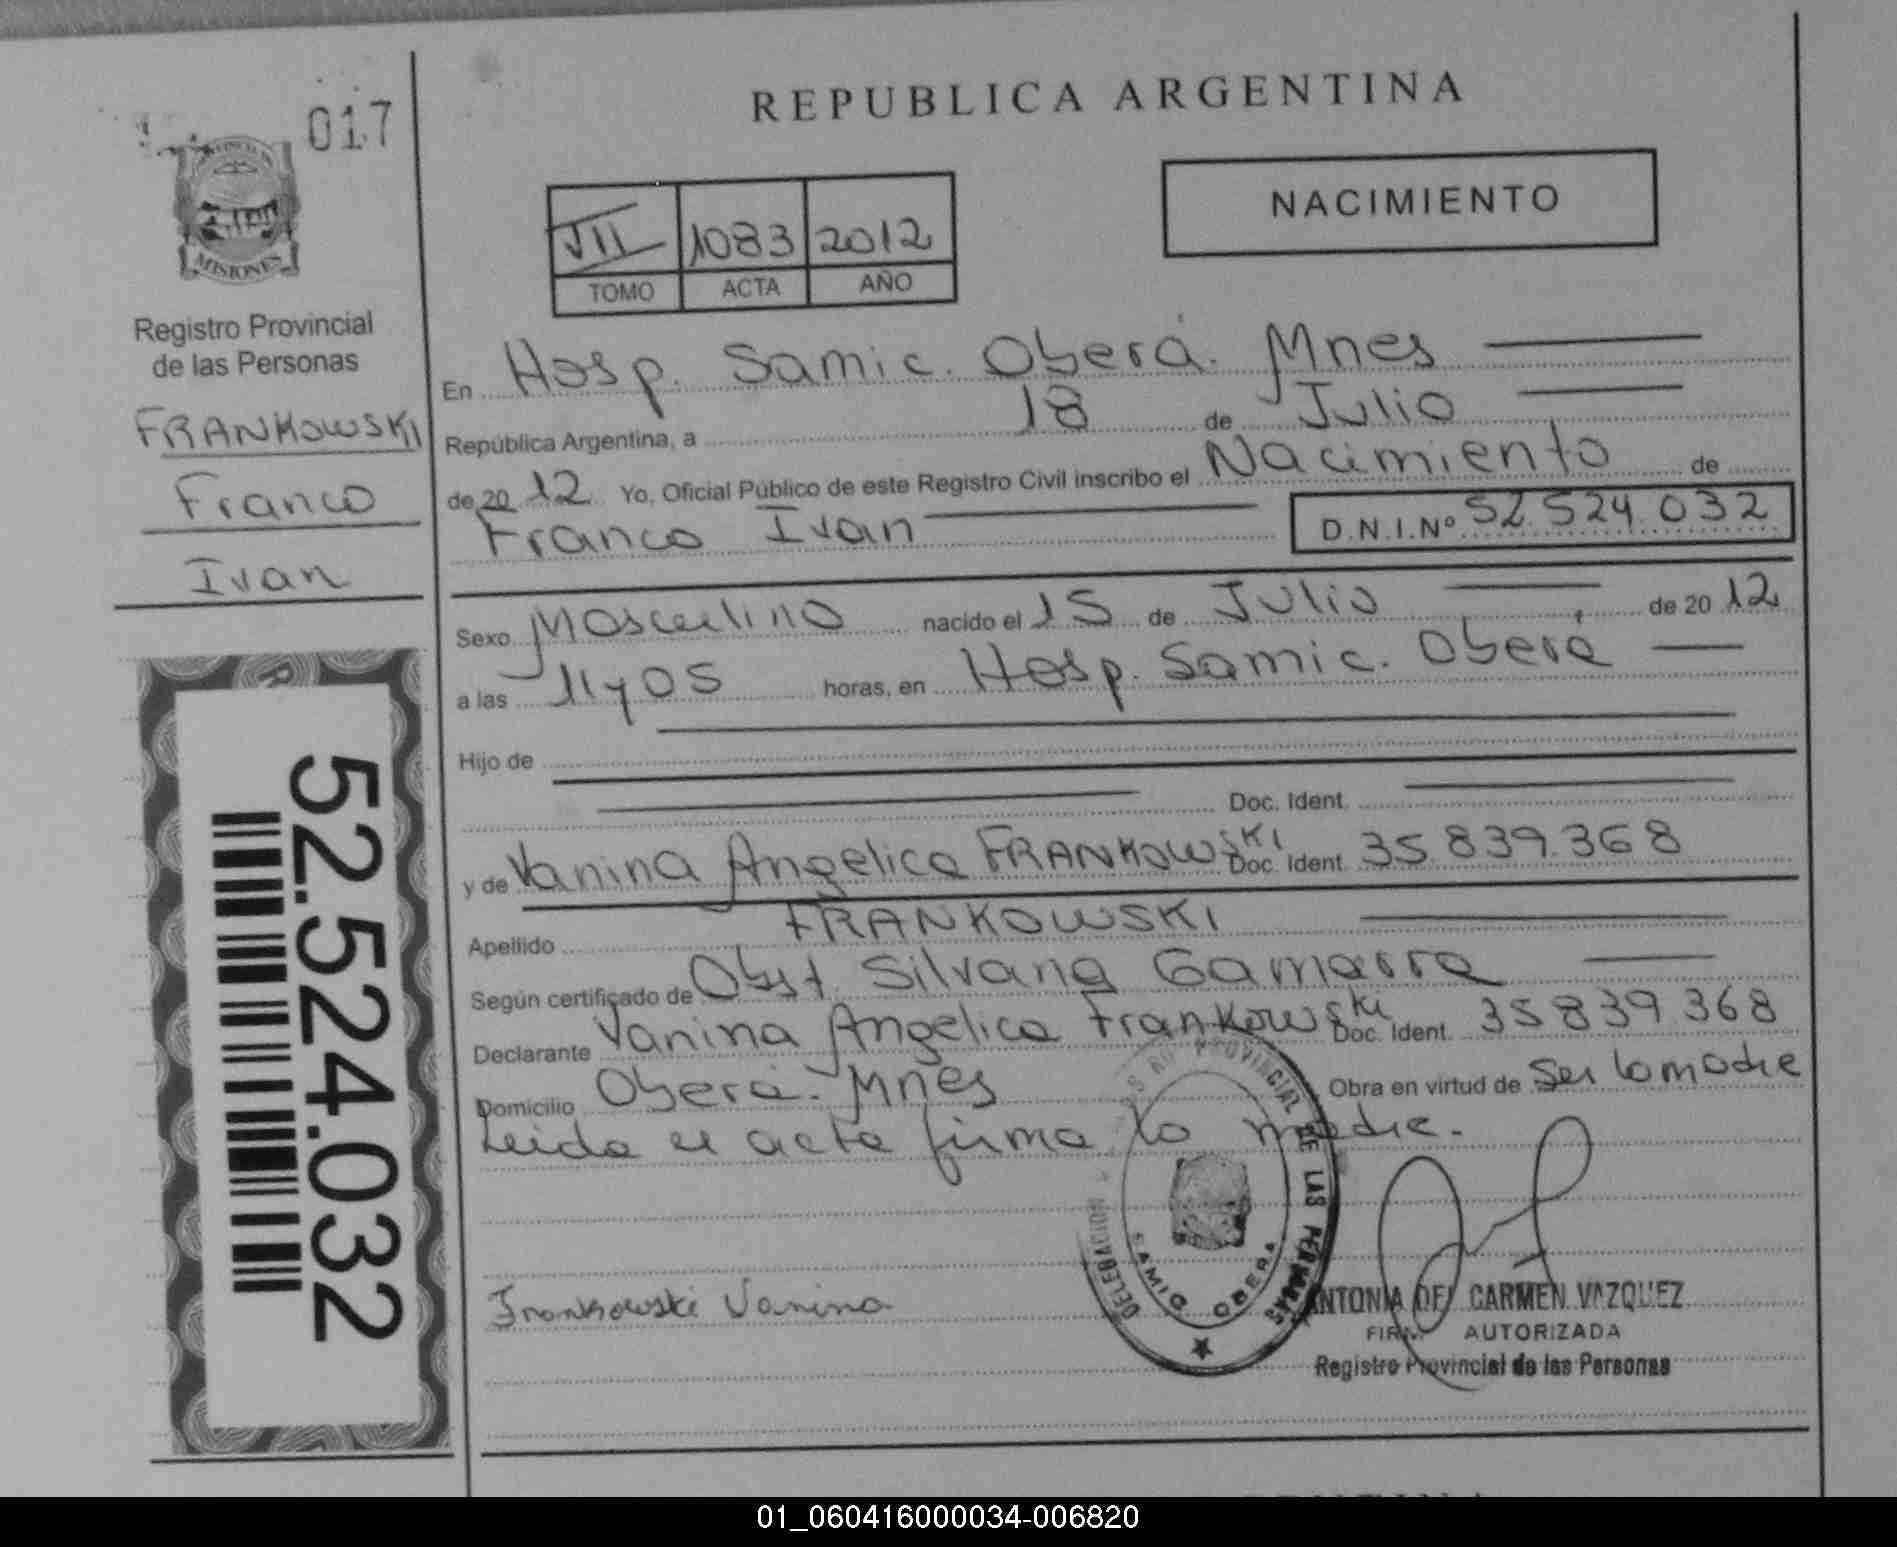 017
PROVINCIA DE
MISIONES
Registro Provincial
de las Personas
FRANKOWSKI
Franco
Ivan
52.524.032
REPUBLICA ARGENTINA
NACIMIENTO
VII 1083 2012
TOMO ACTA AÑO
En Hosp. Samic. Oberá. Mnes
República Argentina, a 18 de Julio
de 20 12 Yo, Oficial Público de este Registro Civil inscribo el Nacimiento de
Franco Ivan D.N.I.Nº 52.524.032
Sexo Masculino nacido el 15 de Julio de 20 12
a las 11y05 horas, en Hosp. Samic. Oberá
Hijo de
Doc. Ident.
y de Vanina Angelica FRANKOWSKI Doc. Ident. 35.839.368
Apellido FRANKOWSKI
Según certificado de Obst. Silvana Gamarra
Declarante Vanina Angelica Frankowski Doc. Ident. 35839368
Domicilio Oberá. Mnes Obra en virtud de Ser la madre
Leida el acta firma la madre.
PROVINCIAL DE LAS PERSONAS
DELEGACION
OBERA
Frankowski Vanina
ANTONIA DEL CARMEN VAZQUEZ
FIRMA AUTORIZADA
Registro Provincial de las Personas
01_060416000034-006820